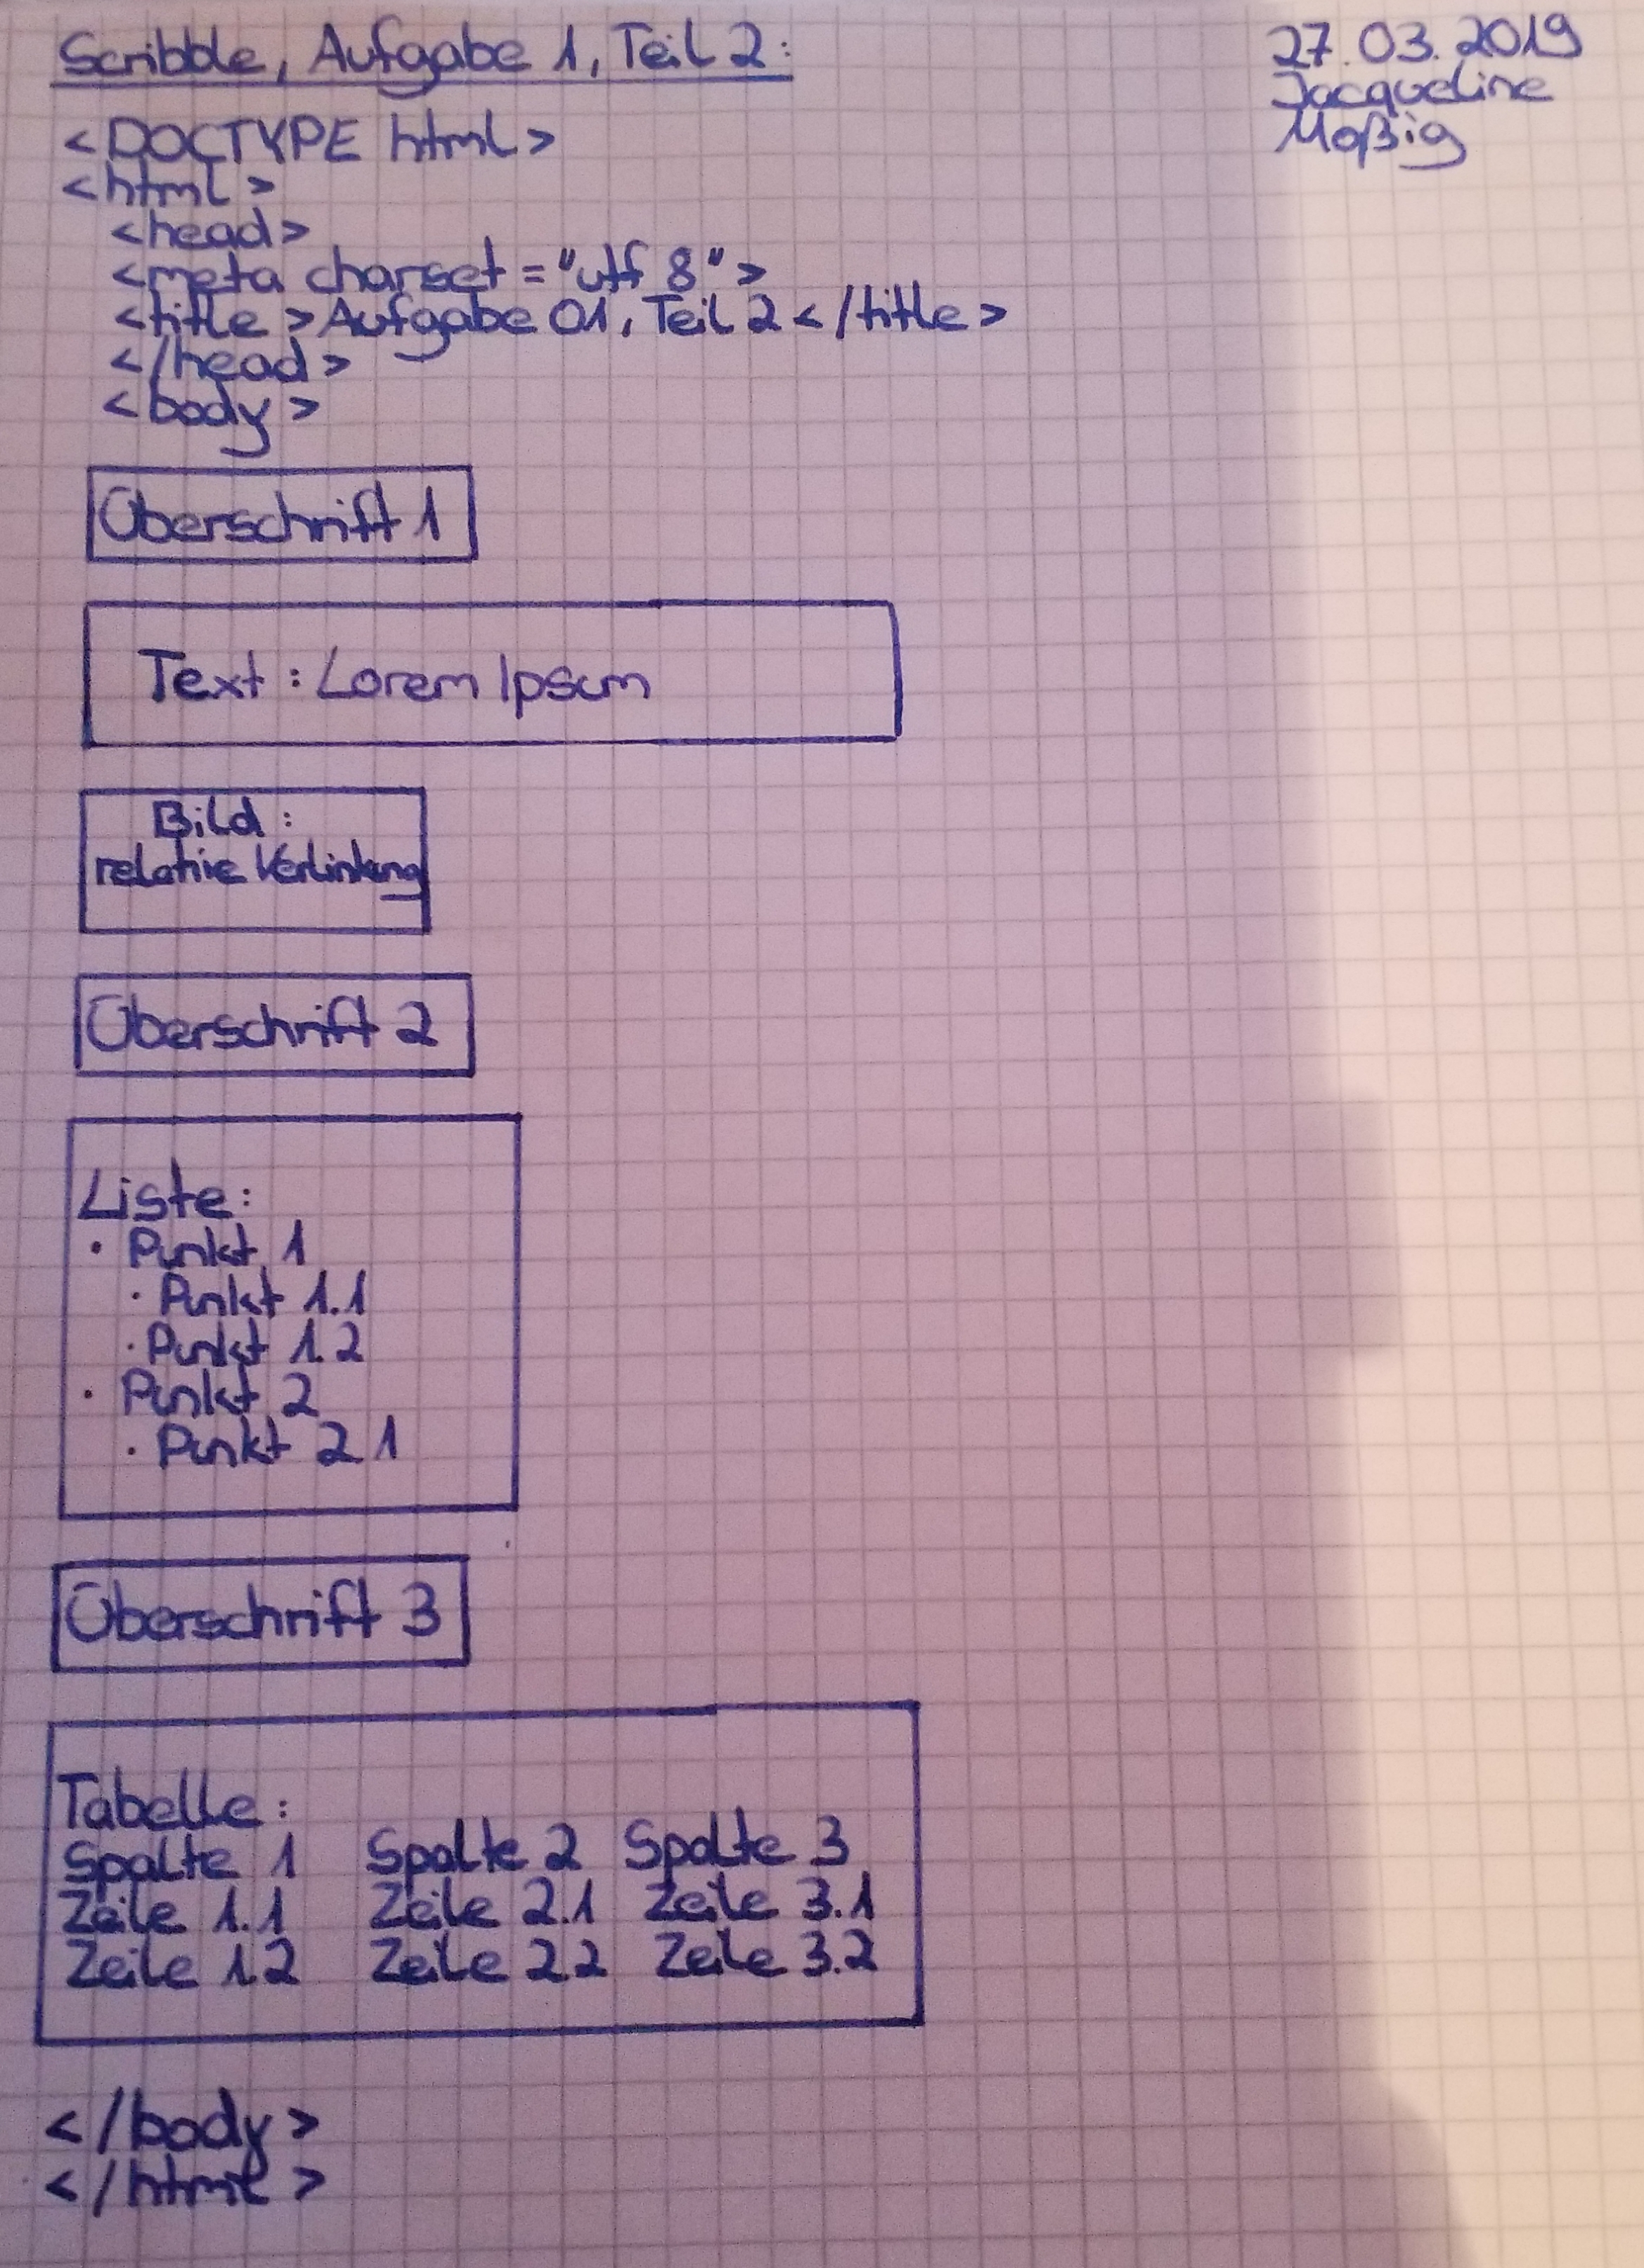 Scribble, Aufgabe 1, Teil 2:
27.03.2019
Jacqueline
Moßig
<DOCTYPE html>
<html>
<head>
<meta charset="utf 8">
<title>Aufgabe 01, Teil 2</title>
</head>
<body>
Überschrift 1
Text: Lorem Ipsum
Bild:
relative Verlinkung
Überschrift 2
Liste:
• Punkt 1
• Punkt 1.1
• Punkt 1.2
• Punkt 2
• Punkt 2.1
Überschrift 3
Tabelle:
Spalte 1 Spalte 2 Spalte 3
Zeile 1.1 Zeile 2.1 Zeile 3.1
Zeile 1.2 Zeile 2.2 Zeile 3.2
</body>
</html>